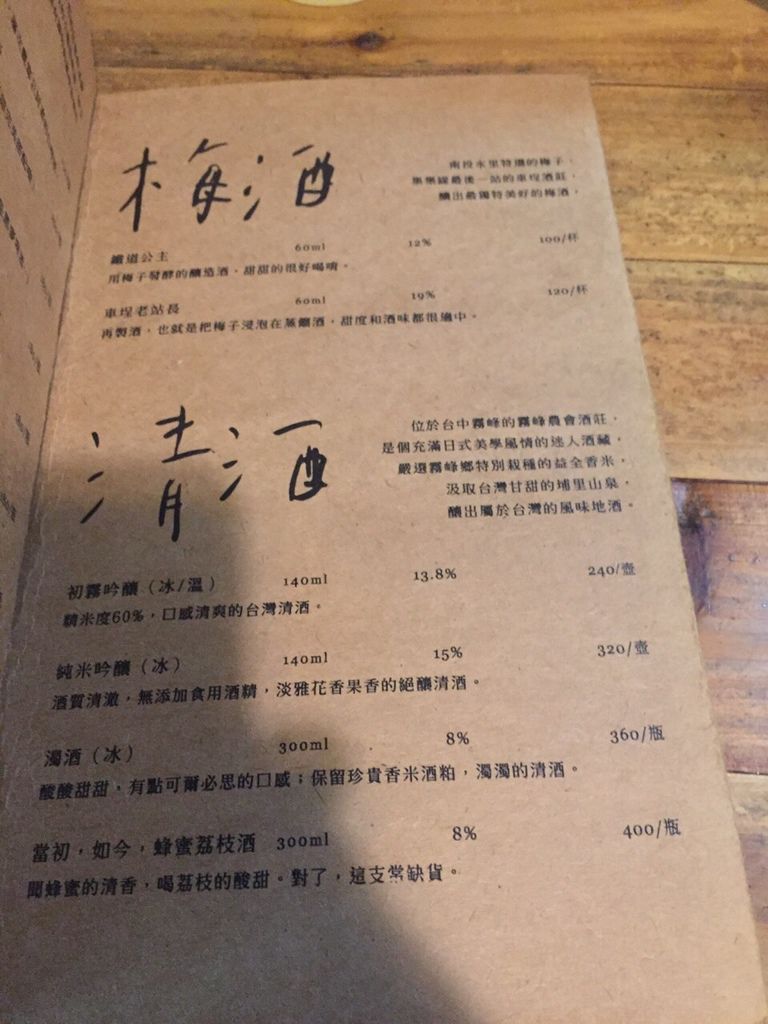 梅酒
南投水里特選的梅子，
集集線最後一站的車埕酒莊，
釀出最獨特美好的梅酒，
鐵道公主 60ml 12% 100/杯
用梅子發酵的釀造酒，甜甜的很好喝唷。
車埕老站長 60ml 19% 120/杯
再製酒，也就是把梅子浸泡在蒸餾酒，甜度和酒味都很適中。
清酒
位於台中霧峰的霧峰農會酒莊，
是個充滿日式美學風情的迷人酒藏，
嚴選霧峰鄉特別栽種的益全香米，
汲取台灣甘甜的埔里山泉，
釀出屬於台灣的風味地酒。
初霧吟釀（冰/溫） 140ml 13.8% 240/壺
精米度60%，口感清爽的台灣清酒。
純米吟釀（冰） 140ml 15% 320/壺
酒質清澈，無添加食用酒精，淡雅花香果香的絕釀清酒。
濁酒（冰） 300ml 8% 360/瓶
酸酸甜甜，有點可爾必思的口感；保留珍貴香米酒粕，濁濁的清酒。
當初，如今，蜂蜜荔枝酒 300ml 8% 400/瓶
聞蜂蜜的清香，喝荔枝的酸甜。對了，這支常缺貨。